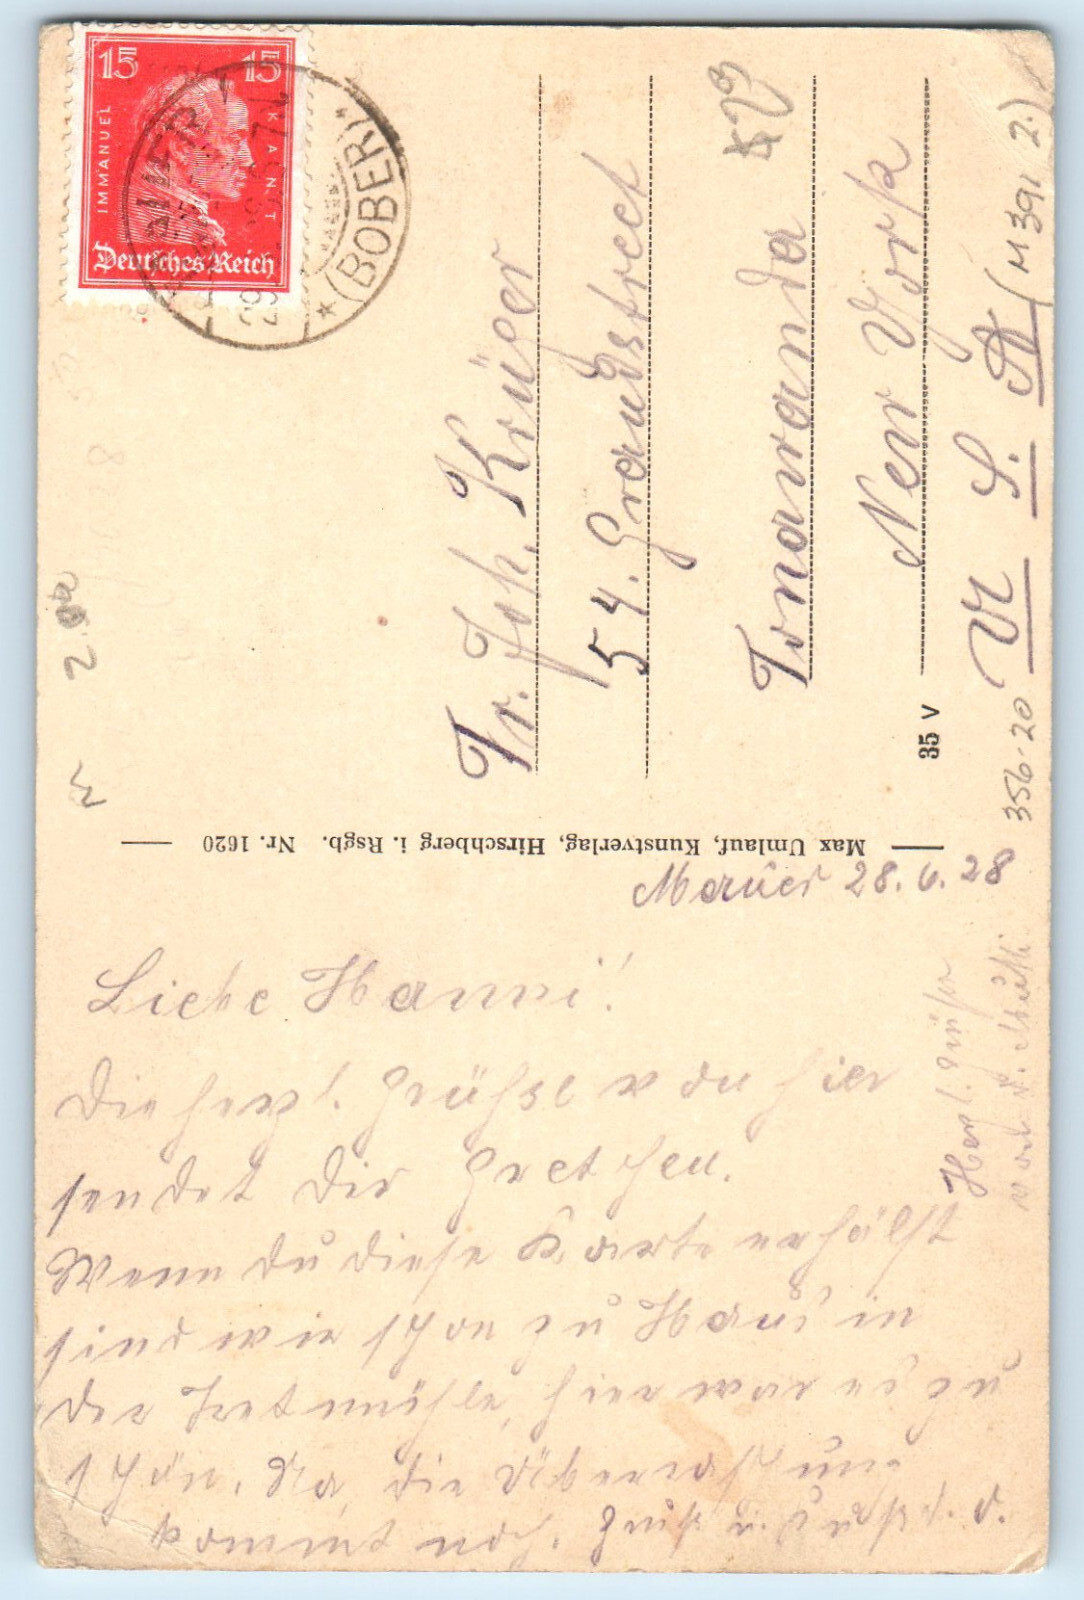 15 15
IMMANUEL KANT
Deutsches Reich
(BOBER)
29
Fr. Joh. Krüger
54. Grandstreet
Tonawanda
New York
U. S. A
(M 391 2.)
356-20
35 V
2.00
Max Umlauf, Kunstverlag, Hirschberg i. Rsgb. Nr. 1620
Mauer 28. 6. 28
Liebe Hanni!
Die herzl. Grühse von hier
sendet dir Gretchen.
Wenn du diese Karte erhälst
sind wir schon zu Haus in
der Tretmühle, hier war es zu
schön. Na, die Überraschung
kommt noch. Gruß u. Kuß d. O.
Herzl. Grüße
von d. Mutti